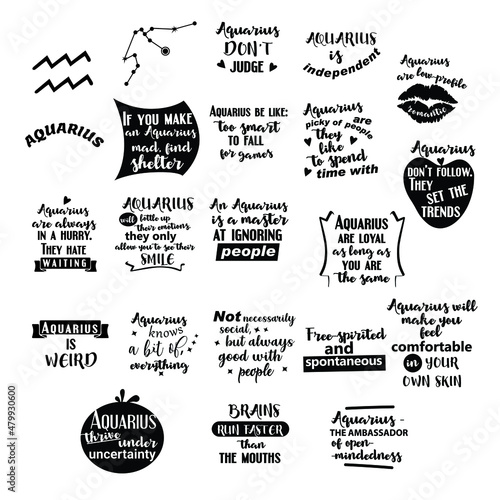 Aquarius
DON'T
JUDGE
AQUARIUS
is
independent
Aquarius
are low-profile
romantic
AQUARIUS
IF YOU MAKE
an Aquarius
mad, find
shelter
AQUARIUS BE LIKE:
Too smart
to fall
for games
Aquarius
are
picky of people
they
like
to spend
time with
Aquarius
DON'T FOLLOW.
THEY
SET THE
TRENDS
Aquarius
are always
IN A HURRY.
THEY HATE
WAITING
AQUARIUS
will bottle up
their emotions,
they only
allow you to see their
SMILE
An Aquarius
is a master
AT IGNORING
people
AQUARIUS
ARE LOYAL
as long as
YOU ARE
THE SAME
AQUARIUS
IS
WEIRD
Aquarius
knows
a bit of
everything
Not necessarily
social,
but always
good with
people
Free-spirited
and
spontaneous
Aquarius will
make you
feel
comfortable
in YOUR
OWN SKIN
AQUARIUS
thrive under
uncertainty
BRAINS
RUN FASTER
than
THE MOUTHS
Aquarius
- THE AMBASSADOR
of open-
mindedness
Adobe Stock | #479930600